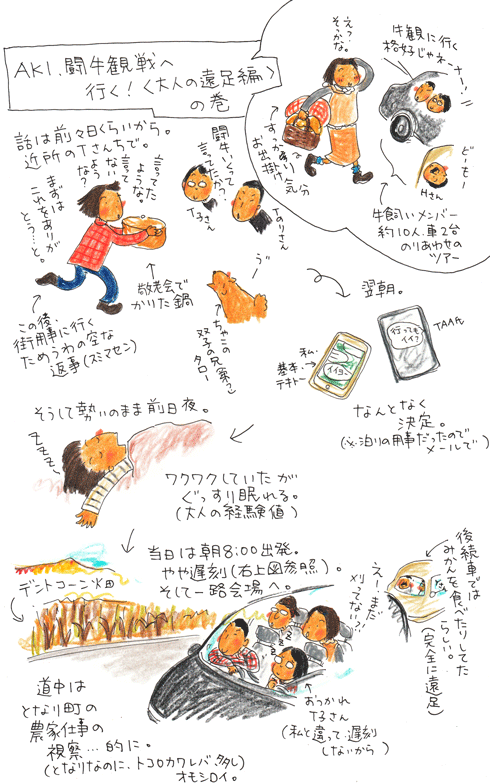 AKI、闘牛観戦へ
行く！〈大人の遠足編〉
の巻
え？
そうかな。
牛観に行く
格好じゃネーナー！！
すっかり
お出掛け気分
どーもー
Hさん
牛飼いメンバー
約10人、車2台
のりあわせの
ツアー
話は前々日くらいから。
近所のTさんちで。
言ってた
ような
言って
ないような？
まずは
これをありが
とうーと。
闘牛いくって
言ってたから
T子さん
Tのりさん
敬老会で
かりた鍋
ちゃこの
双子の兄弟
タロー
この後、
街用事に行く
ためうわの空な
返事（スミマセン）
翌朝。
私、
基本、
テキトー
イイヨー
行っても
イイ？
TAA氏
なんとなく
決定。
（※泊りの用事だったので
メールで）
そうして勢いのまま前日夜。
ワクワクしていたが
ぐっすり眠れる。
（大人の経験値）
当日は朝8:00出発。
やや遅刻（右上図参照）。
そして一路会場へ。
デントコーン畑
えーまだ
刈ってない？！
後続車では
みかんを食べたりしてた
らしい。
（完全に遠足）
道中は
となり町の
農家仕事の
視察…的に。
（となりなのに、トコロカワレバ多し）
オモシロイ。
おつかれ
T子さん
（私と違って遅刻
しないから）